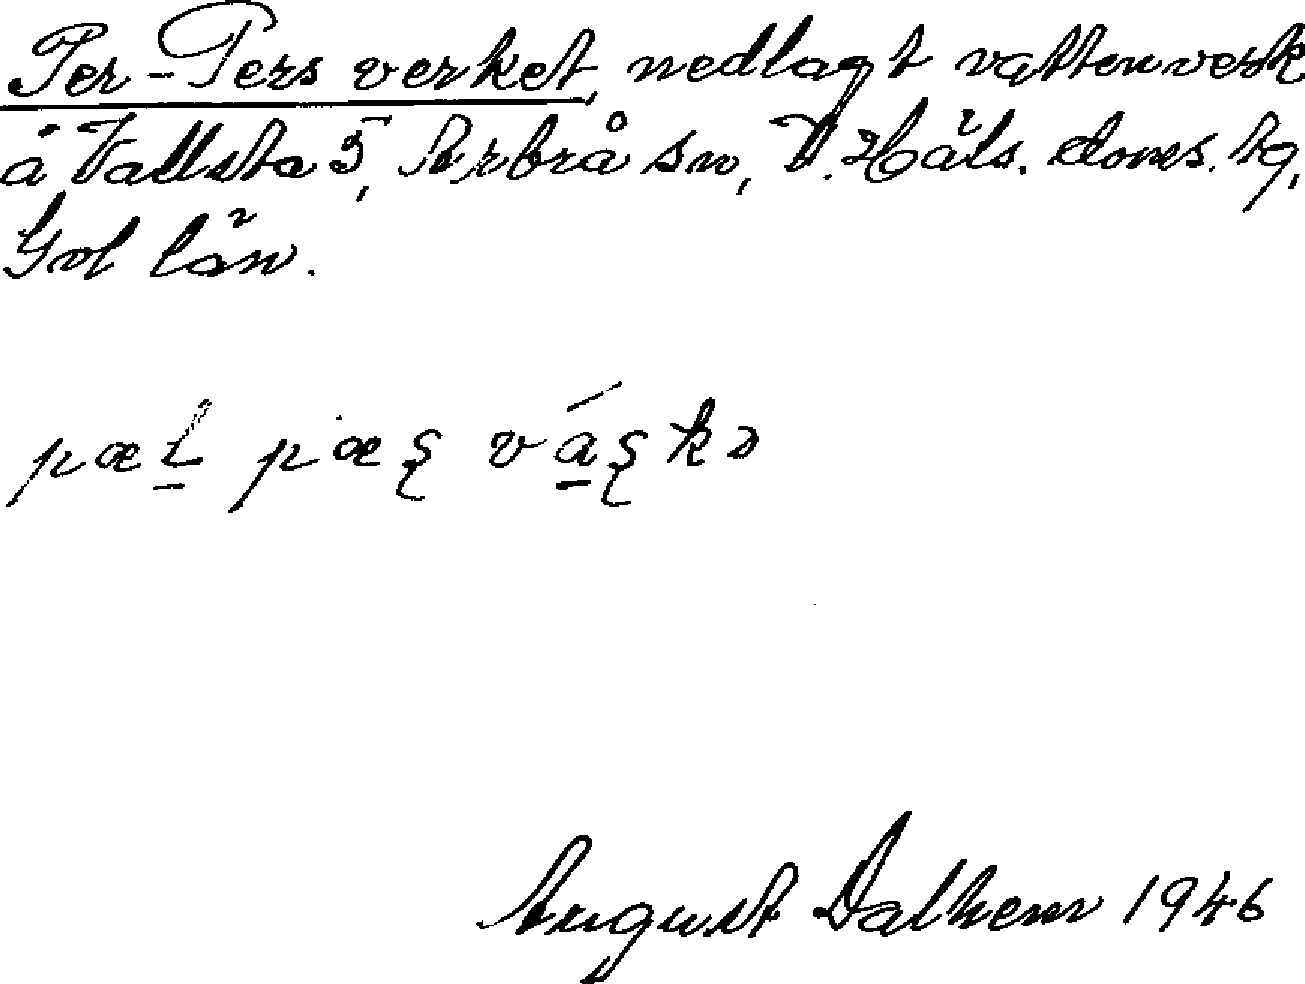 Per-Pers verket, nedlagt vattenverk
å Vallsta 5, Arbrå sn, V. Häls. doms. hg,
Gvl län.
pæL pæs váskə
August Dalhem 1946